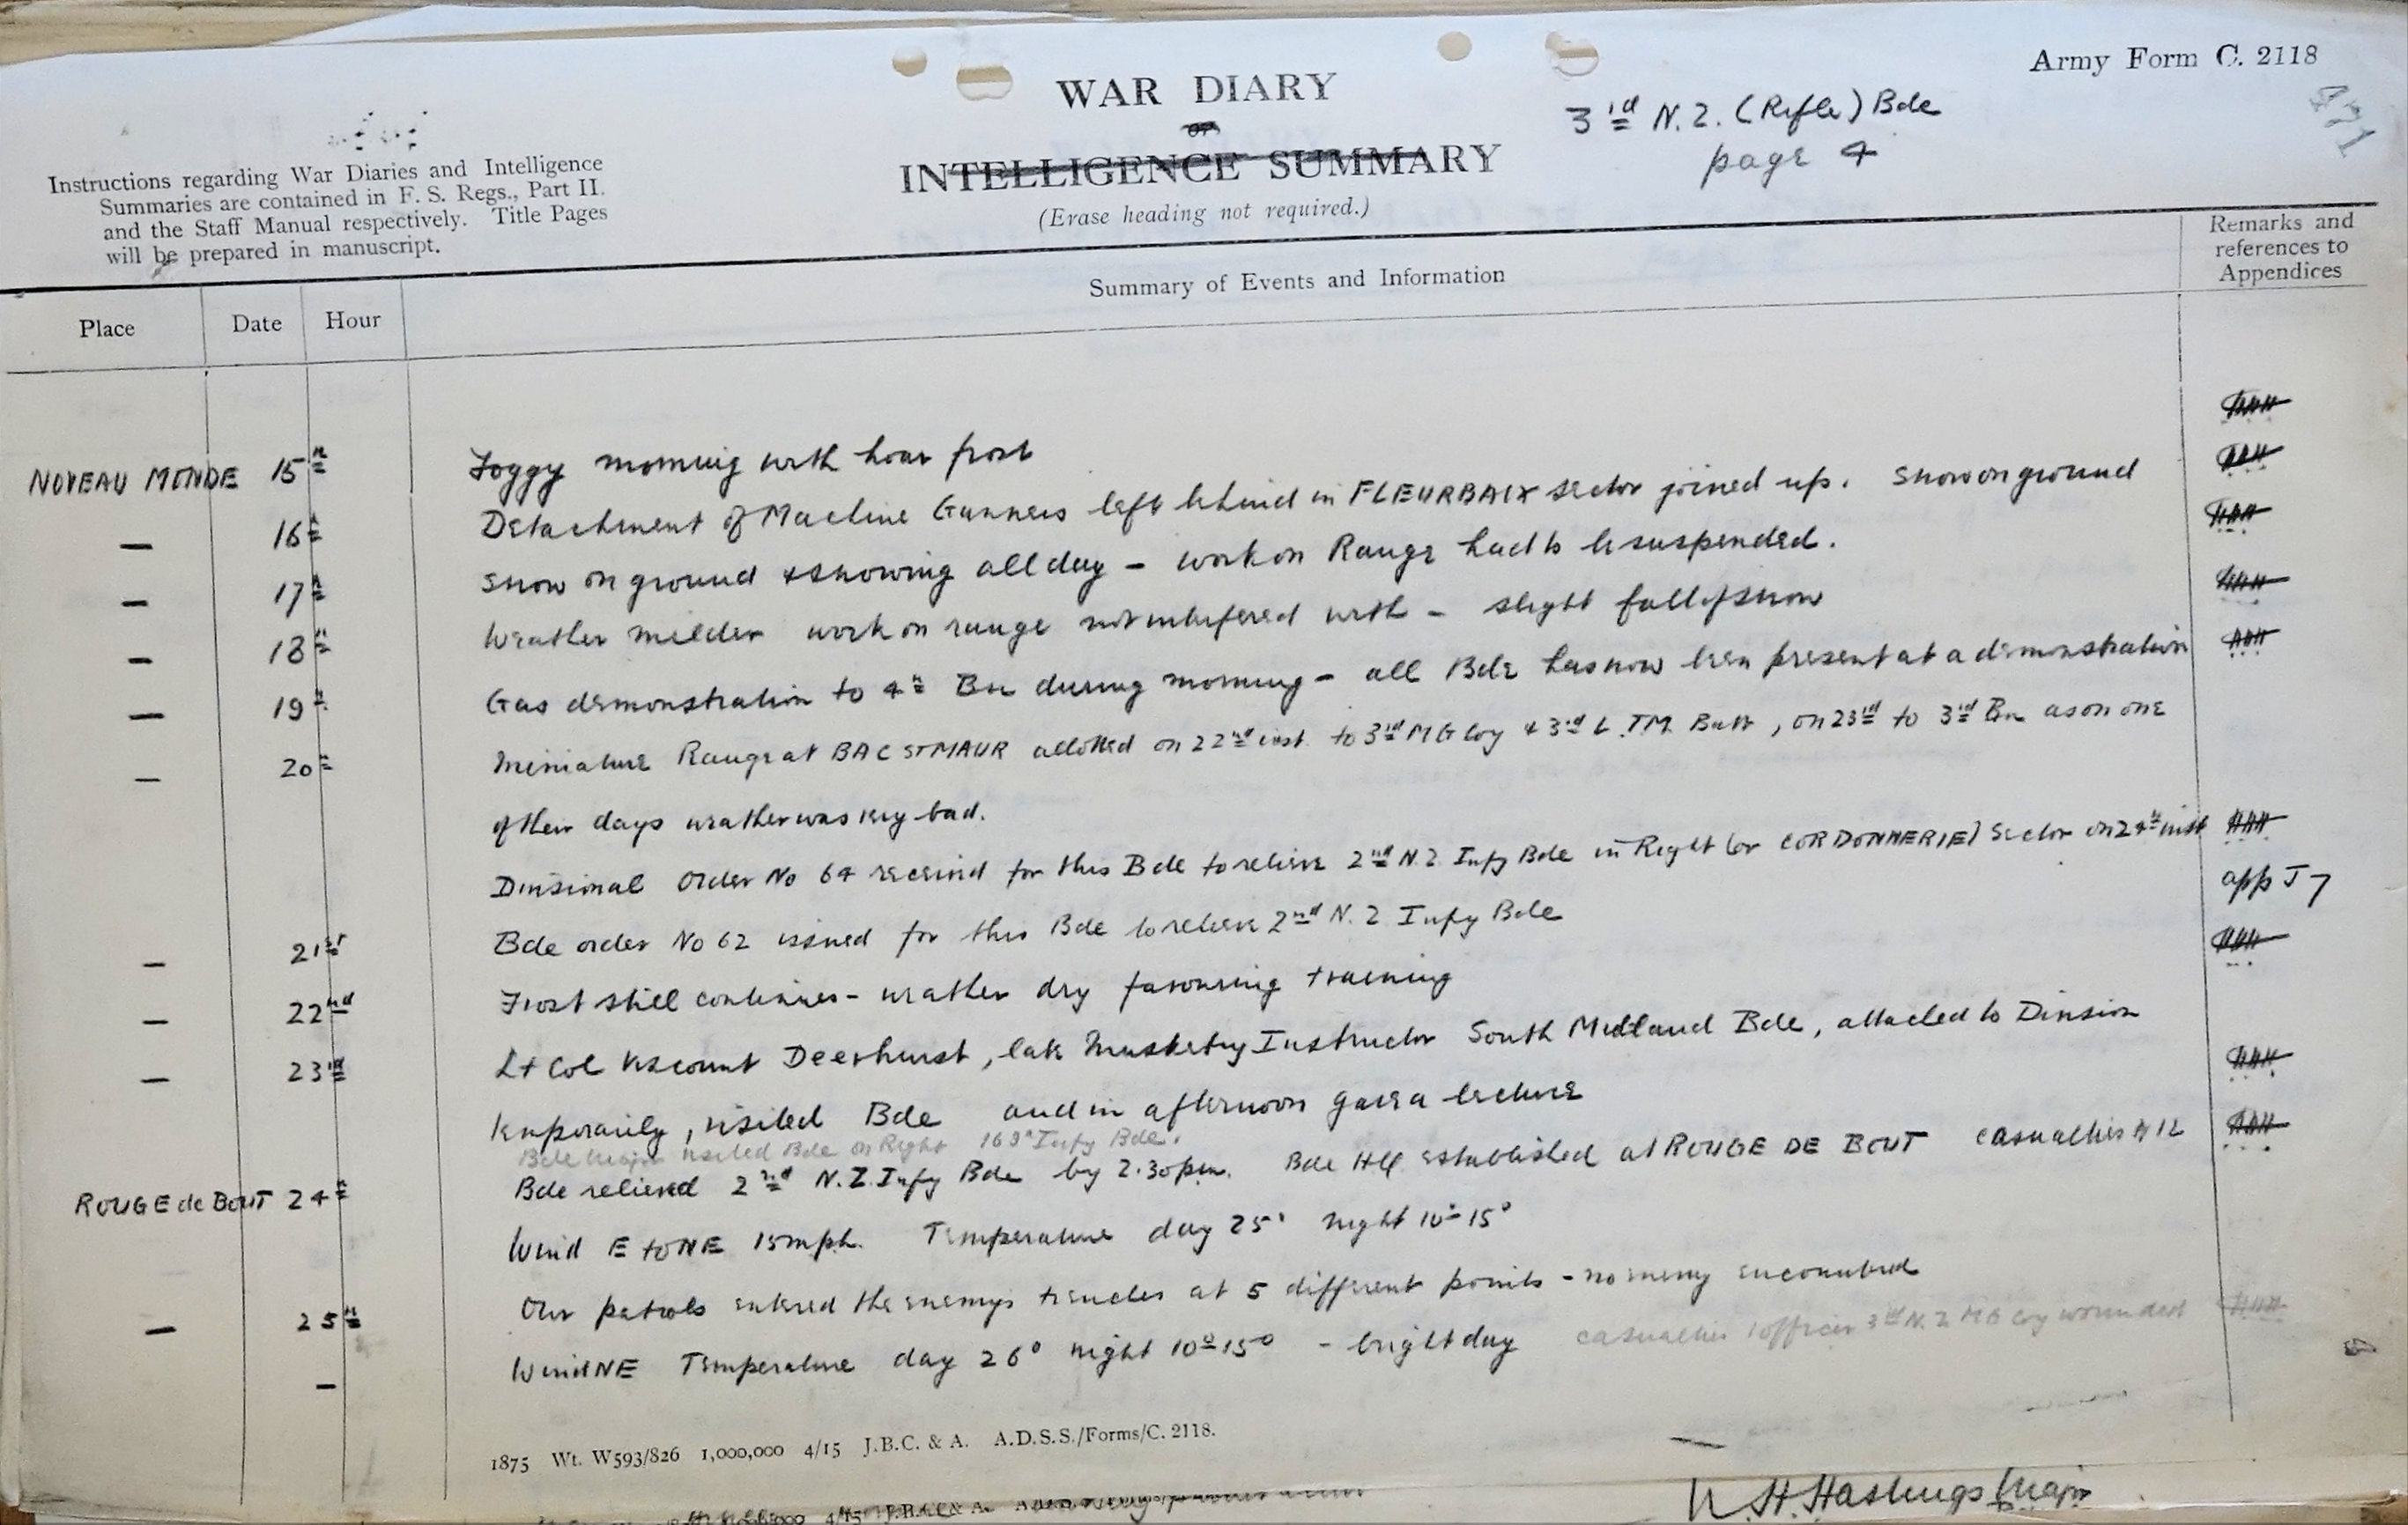 Army Form C. 2118
WAR DIARY
or
INTELLIGENCE SUMMARY
(Erase heading not required.)
3rd N.Z. (Rifle) Bde
page 4
471
Instructions regarding War Diaries and Intelligence
Summaries are contained in F. S. Regs., Part II.
and the Staff Manual respectively. Title Pages
will be prepared in manuscript.
Remarks and
references to
Appendices
Summary of Events and Information
Place Date Hour
NOVEAU MONDE 15th Foggy morning with hoar frost
— 16th Detachment of Machine Gunners left behind in FLEURBAIX sector joined up. Snow on ground
— 17th Snow on ground & snowing all day – work on Range had to be suspended.
— 18th Weather milder work on range not interfered with – slight fall of snow
— 19th Gas demonstration to 4th Bn during morning – all Bde has now been present at a demonstration
— 20th Miniature Range at BAC ST MAUR allotted on 22nd inst. to 3rd MG Coy & 3rd L.TM. Batt, on 23rd to 3rd Bn as on one
of their days weather was very bad.
Divisional Order No 64 received for this Bde to relieve 2nd N.Z. Infy Bde in Right (or CORDONNERIE) Sector on 24th inst
— 21st Bde order No 62 issued for this Bde to relieve 2nd N.Z Infy Bde app J 7
— 22nd Frost still continues – weather dry favouring training
— 23rd Lt Col Viscount Deerhurst, late Musketry Instructor South Midland Bde, attached to Division
temporarily, visited Bde and in afternoon gave a lecture
Bde Major visited Bde on Right 169th Infy Bde.
ROUGE de BOUT 24th Bde relieved 2nd N.Z. Infy Bde by 2.30pm. Bde HQ established at ROUGE DE BOUT casualties 12
Wind E to NE 15mph. Temperature day 25° night 10°-15°
— 25th Our patrols entered the enemys trenches at 5 different points – no enemy encountered
— Wind NE Temperature day 26° night 10°-15° – bright day casualties 1 officer 3rd N.Z MG Coy wounded
1875 Wt. W593/826 1,000,000 4/15 J.B.C. & A. A.D.S.S./Forms/C. 2118.
N.H. Hastings Major
4/15 J.B.C. & A.